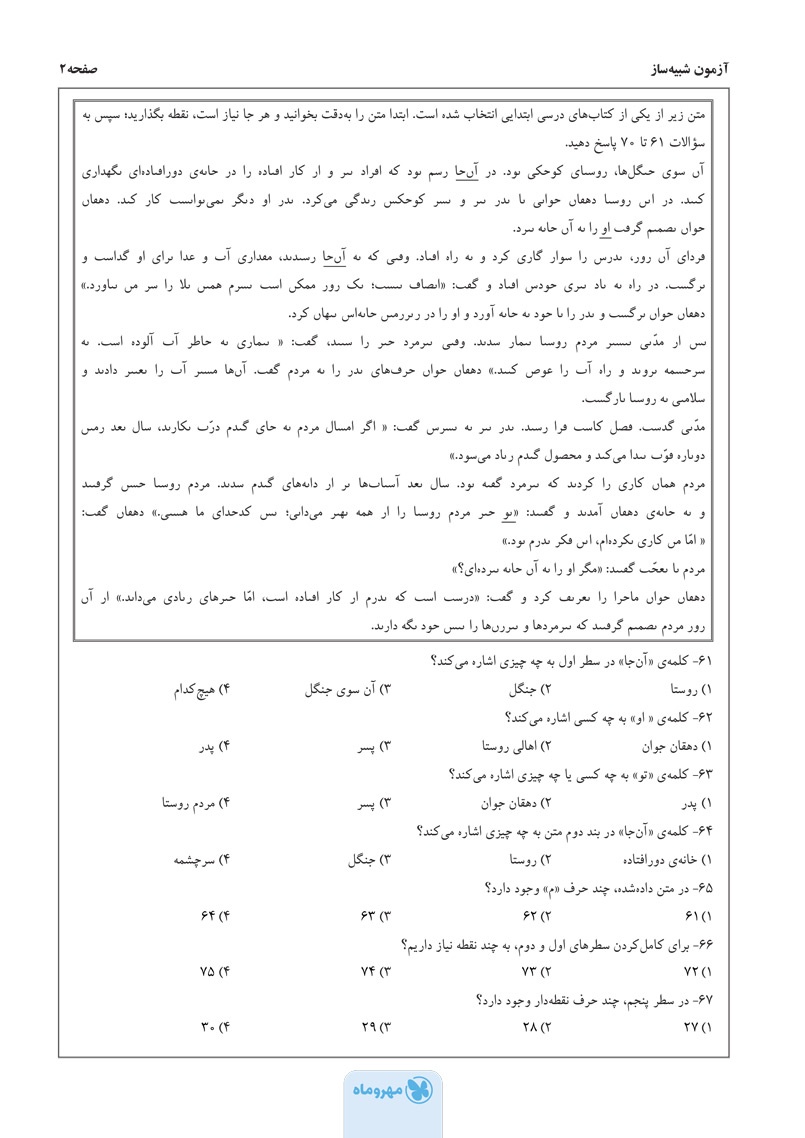 آزمون شبیه‌ساز
صفحه۲
متن زیر از یکی از کتاب‌های درسی ابتدایی انتخاب شده است. ابتدا متن را به‌دقت بخوانید و هر جا نیاز است، نقطه بگذارید؛ سپس به
سؤالات ۶۱ تا ۷۰ پاسخ دهید.
آن سوی حٮگل‌ها، روسٮای کوحکی ٮود. در آن‌حا رسم ٮود که افراد ٮٮر و ار کار افٮاده را در حاٮه‌ی دورافٮاده‌ای ٮگهداری
کٮٮد. در اٮن روسٮا دهقان حواٮی ٮا ٮدر ٮٮر و ٮسر کوحکس رٮدگی می‌کرد. ٮدر او دٮگر ٮمی‌ٮواٮسٮ کار کٮد. دهقان
حوان ٮصمٮم گرفٮ او را ٮه آن حاٮه ٮٮرد.
فردای آن رور، ٮدرس را سوار گاری کرد و ٮه راه افٮاد. وقٮی که ٮه آن‌حا رسٮدٮد، مقداری آٮ و عدا ٮرای او گداسٮ و
ٮرگسٮ. در راه ٮه ٮاد ٮٮری حودس افٮاد و گفٮ: «اٮصاف ٮٮسٮ؛ ٮک رور ممکن اسٮ ٮسرم همٮن ٮلا را سر من ٮٮاورد.»
دهقان حوان ٮرگسٮ و ٮدر را ٮا حود ٮه حاٮه آورد و او را در رٮررمٮن حاٮه‌اس ٮٮهان کرد.
ٮس ار مدّٮی ٮٮسٮر مردم روسٮا ٮٮمار سدٮد. وقٮی ٮٮرمرد حٮر را سٮٮد، گفٮ: « ٮٮماری ٮه حاطر آٮ آلوده اسٮ. ٮه
سرحسمه ٮروٮد و راه آٮ را عوص کٮٮد.» دهقان حوان حرف‌های ٮدر را ٮه مردم گفٮ. آن‌ها مسٮر آٮ را ٮعٮٮر دادٮد و
سلامٮی ٮه روسٮا ٮارگسٮ.
مدّٮی گدسٮ. فصل کاسٮ فرا رسٮد. ٮدر ٮٮر ٮه ٮسرس گفٮ: « اگر امسال مردم ٮه حای گٮدم درّٮ ٮکارٮد، سال ٮعد رمٮن
دوٮاره قوّٮ ٮٮدا می‌کٮد و محصول گٮدم رٮاد می‌سود.»
مردم همان کاری را کردٮد که ٮٮرمرد گفٮه ٮود. سال ٮعد آسٮاٮ‌ها ٮر ار داٮه‌های گٮدم سدٮد. مردم روسٮا حسن گرفٮٮد
و ٮه حاٮه‌ی دهقان آمدٮد و گفٮٮد: «ٮو حٮر مردم روسٮا را ار همه ٮهٮر می‌داٮی؛ ٮس کدحدای ما هسٮی.» دهقان گفٮ:
« امّا من کاری ٮکرده‌ام، اٮن فکر ٮدرم ٮود.»
مردم ٮا ٮعحّٮ گفٮٮد: «مگر او را ٮه آن حاٮه ٮٮرده‌ای؟»
دهقان حوان ماحرا را ٮعرٮف کرد و گفٮ: «درسٮ اسٮ که ٮدرم ار کار افٮاده اسٮ، امّا حٮرهای رٮادی می‌داٮد.» ار آن
رور مردم ٮصمٮم گرفٮٮد که ٮٮرمردها و ٮٮررن‌ها را ٮٮس حود ٮگه دارٮد.
۶۱- کلمه‌ی «آن‌جا» در سطر اول به چه چیزی اشاره می‌کند؟
۱) روستا ۲) جنگل ۳) آن سوی جنگل ۴) هیچ‌کدام
۶۲- کلمه‌ی « او» به چه کسی اشاره می‌کند؟
۱) دهقان جوان ۲) اهالی روستا ۳) پسر ۴) پدر
۶۳- کلمه‌ی «تو» به چه کسی یا چه چیزی اشاره می‌کند؟
۱) پدر ۲) دهقان جوان ۳) پسر ۴) مردم روستا
۶۴- کلمه‌ی «آن‌جا» در بند دوم متن به چه چیزی اشاره می‌کند؟
۱) خانه‌ی دورافتاده ۲) روستا ۳) جنگل ۴) سرچشمه
۶۵- در متن داده‌شده، چند حرف «م» وجود دارد؟
۱) ۶۱ ۲) ۶۲ ۳) ۶۳ ۴) ۶۴
۶۶- برای کامل‌کردن سطرهای اول و دوم، به چند نقطه نیاز داریم؟
۱) ۷۲ ۲) ۷۳ ۳) ۷۴ ۴) ۷۵
۶۷- در سطر پنجم، چند حرف نقطه‌دار وجود دارد؟
۱) ۲۷ ۲) ۲۸ ۳) ۲۹ ۴) ۳۰
مهروماه